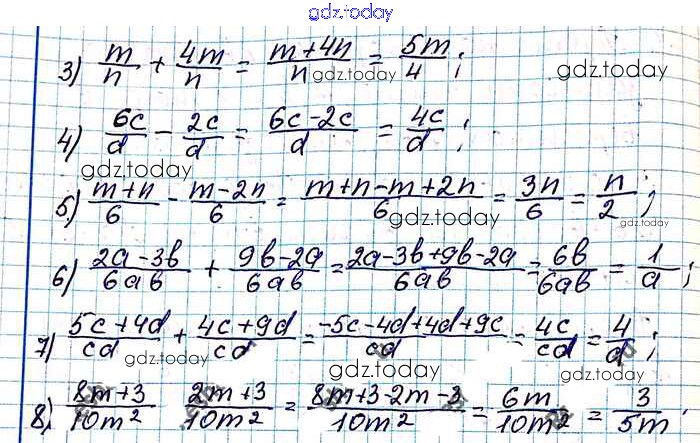 gdz.today
3) m/n + 4m/n = m+4n/n = 5m/4 ;
gdz.today gdz.today
4) 6c/d - 2c/d = 6c-2c/d = 4c/d ;
gdz.today
5) m+n/6 - m-2n/6 = m+n-m+2n/6 = 3n/6 = n/2 ;
gdz.today gdz.today
6) 2a-3b/6ab + 9b-2a/6ab = 2a-3b+9b-2a/6ab = 6b/6ab = 1/a ;
gdz.today
7) 5c+4d/cd + 4c+9d/cd = -5c-4d+4d+9c/cd = 4c/cd = 4/d ;
gdz.today gdz.today
8) 8m+3/10m² 2m+3/10m² = 8m+3-2m-3/10m² = 6m/10m² = 3/5m .